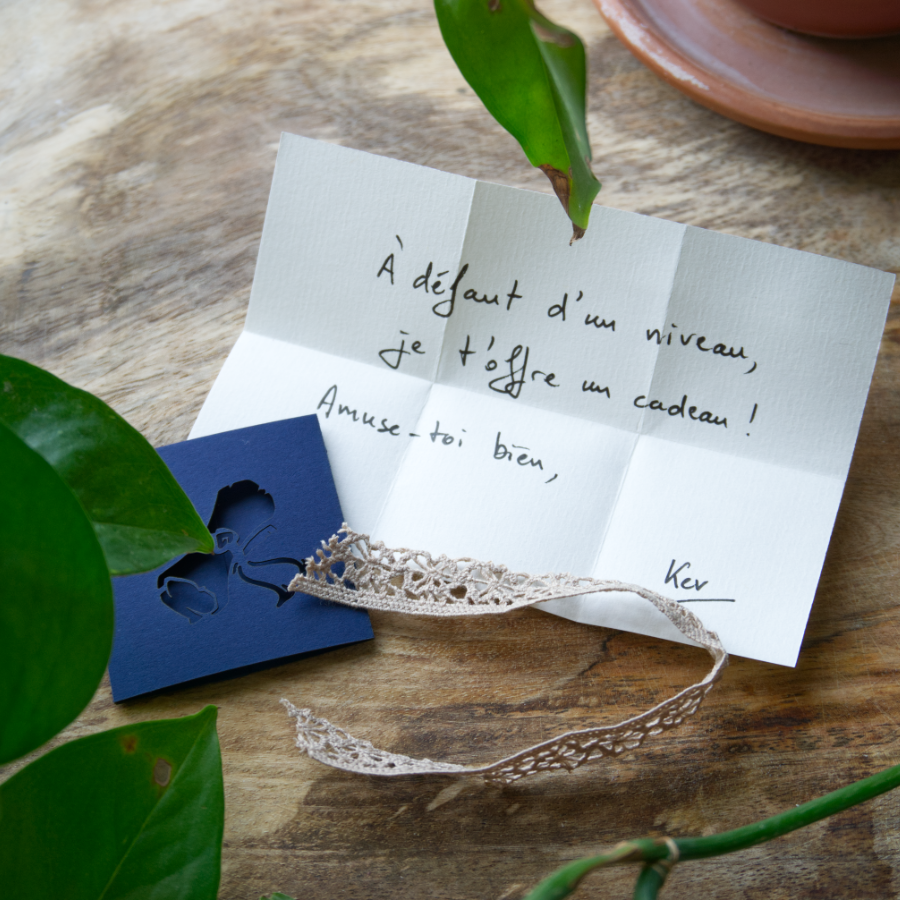 À défaut d'un niveau,
je t'offre un cadeau !
Amuse-toi bien,
Kev